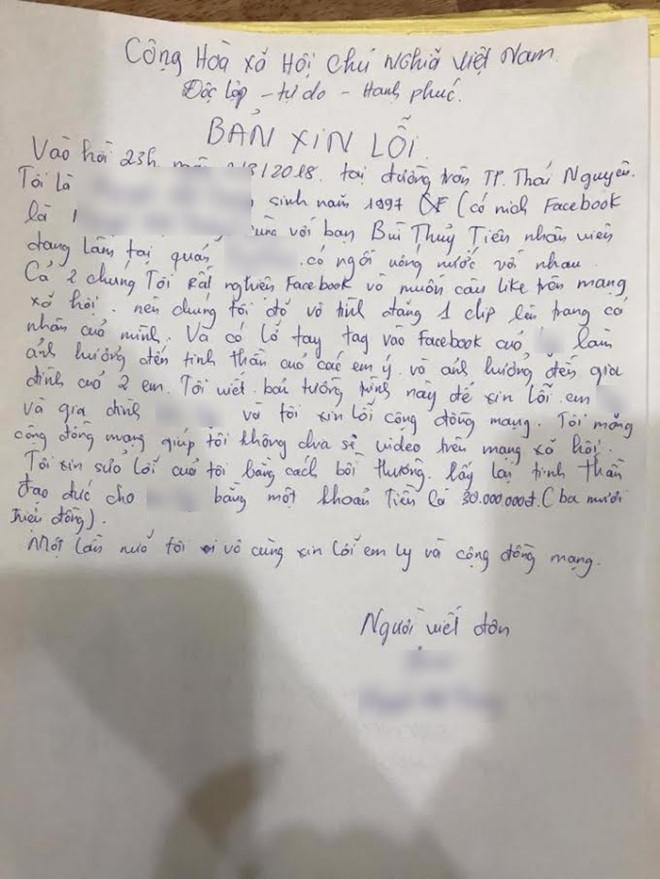 Cộng Hoà Xã Hội Chủ Nghĩa Việt Nam
Độc lập - tự do - Hạnh phúc.
BẢN XIN LỖI
Vào hồi 23h /8/2018. tại đường tròn TP. Thái Nguyên.
Tôi là sinh năm 1997 (có nick Facebook
là cùng với bạn Bùi Thuỷ Tiên nhân viên
đang làm tại quán có ngồi uống nước với nhau
Cả 2 chúng Tôi Rất nghiện Facebook và muốn câu like trên mạng
xã hội. nên chúng tôi đã vô tình đăng 1 clip lên trang cá
nhân của mình. Và có lỡ tay tag vào Facebook của làm
ảnh hưởng đến tinh thần của các em ý và ảnh hưởng đến gia
đình của 2 em. Tôi viết bản tường trình này để xin lỗi em
và gia đình và tôi xin lỗi cộng đồng mạng. Tôi mong
cộng đồng mạng giúp tôi không chia sẻ video trên mạng xã hội.
Tôi xin sửa lỗi của tôi bằng cách bồi thường lấy lại tinh thần
đạo đức cho bằng một khoản Tiền là 30.000.000đ. (ba mươi
triệu đồng).
Một lần nữa tôi vô cùng xin lỗi em ly và cộng đồng mạng.
Người viết đơn